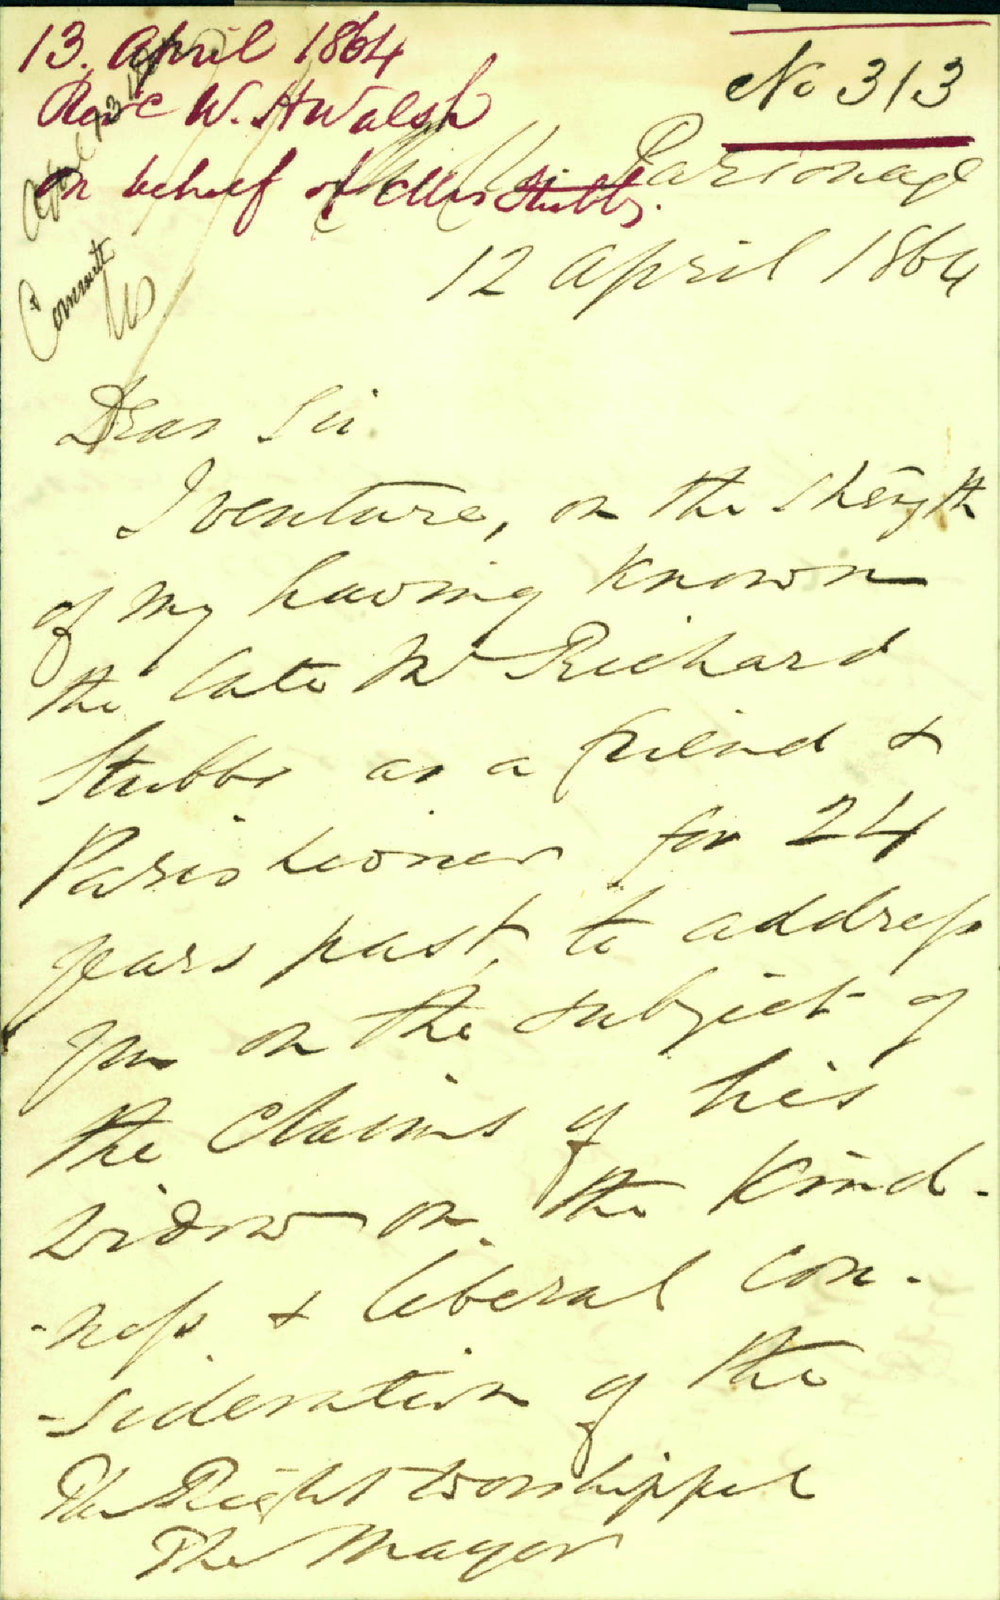 13. April 1864
No 313
Revd W. H Walsh
on behalf of Mrs Stubbs.
Parsonage
12 April 1864
Committee
Dear Sir.
I venture, on the strength
of my having known
the late Mr Richard
Stubbs as a friend &
Parishioner for 24
years past, to address
you on the subject of
the claims of his
widow on the Kind-
-ness & liberal con-
-sideration of the
The Right Worshipful
The Mayor